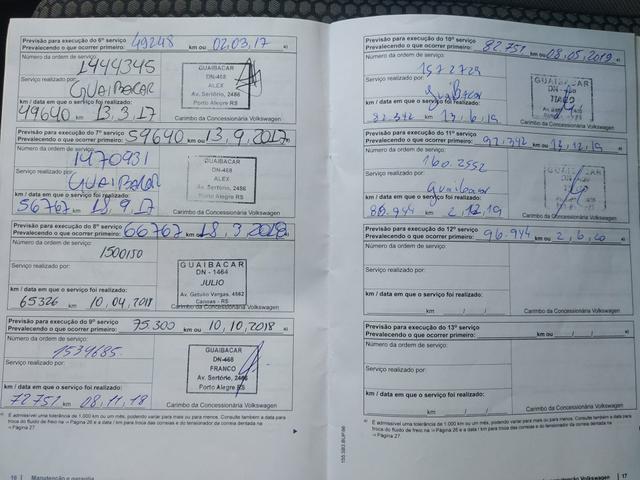 Previsão para execução do 6º serviço
Prevalecendo o que ocorrer primeiro: 49248 km ou 02.03.17 a)
Número da ordem de serviço:
1444345
Serviço realizado por:
GUAIBACAR
km / data em que o serviço foi realizado:
49640 km 13.3.17
GUAIBACAR
DN-468
ALEX
Av. Sertório, 2486
Porto Alegre RS
Carimbo da Concessionária Volkswagen
Previsão para execução do 7º serviço
Prevalecendo o que ocorrer primeiro: 59640 km ou 13.9.2017 a)
Número da ordem de serviço:
1470931
Serviço realizado por:
GUAIBACAR
km / data em que o serviço foi realizado:
56767 km 18.9.17
GUAIBACAR
DN-468
ALEX
Av. Sertório, 2486
Porto Alegre RS
Carimbo da Concessionária Volkswagen
Previsão para execução do 8º serviço
Prevalecendo o que ocorrer primeiro: 66767 km ou 18.3.2018 a)
Número da ordem de serviço:
1500150
Serviço realizado por:
km / data em que o serviço foi realizado:
65326 km 10.04.2018
GUAIBACAR
DN - 1464
JULIO
Av. Getulio Vargas, 4562
Canoas - RS
Carimbo da Concessionária Volkswagen
Previsão para execução do 9º serviço
Prevalecendo o que ocorrer primeiro: 75.300 km ou 10,10,2018 a)
Número da ordem de serviço:
1534685
Serviço realizado por:
km / data em que o serviço foi realizado:
72751 km 08.11.18
GUAIBACAR
DN-468
FRANCO
Av. Sertório, 2486
Porto Alegre RS
Carimbo da Concessionária Volkswagen
a) É admissível uma tolerância de 1.000 km ou um mês, podendo variar para mais ou para menos. Consulte também a data para
troca do fluido de freio na ⇒ Página 26 e a data / km para troca das correias e do tensionador da correia dentada na
⇒ Página 27.
16 Manutenção e garantia
Previsão para execução do 10º serviço
Prevalecendo o que ocorrer primeiro: 82751 km ou 08.05.2019 a)
Número da ordem de serviço:
1572729
Serviço realizado por:
Guaibacar
km / data em que o serviço foi realizado:
82.342 km 13.6.19
GUAIBACAR
TIAGO
Carimbo da Concessionária Volkswagen
Previsão para execução do 11º serviço
Prevalecendo o que ocorrer primeiro: 92.342 km ou 13.12.19 a)
Número da ordem de serviço:
160.2552
Serviço realizado por:
Guaibacar
km / data em que o serviço foi realizado:
86.944 km 2.12.19
Carimbo da Concessionária Volkswagen
Previsão para execução do 12º serviço
Prevalecendo o que ocorrer primeiro: 96.944 km ou 2,6,20 a)
Número da ordem de serviço:
Serviço realizado por:
km / data em que o serviço foi realizado:
km / /
Carimbo da Concessionária Volkswagen
Previsão para execução do 13º serviço
Prevalecendo o que ocorrer primeiro: km ou / / a)
Número da ordem de serviço:
Serviço realizado por:
km / data em que o serviço foi realizado:
km / /
Carimbo da Concessionária Volkswagen
a) É admissível uma tolerância de 1.000 km ou um mês, podendo variar para mais ou para menos. Consulte também a data para
troca do fluido de freio na ⇒ Página 26 e a data / km para troca das correias e do tensionador da correia dentada na
⇒ Página 27.
Volkswagen 17